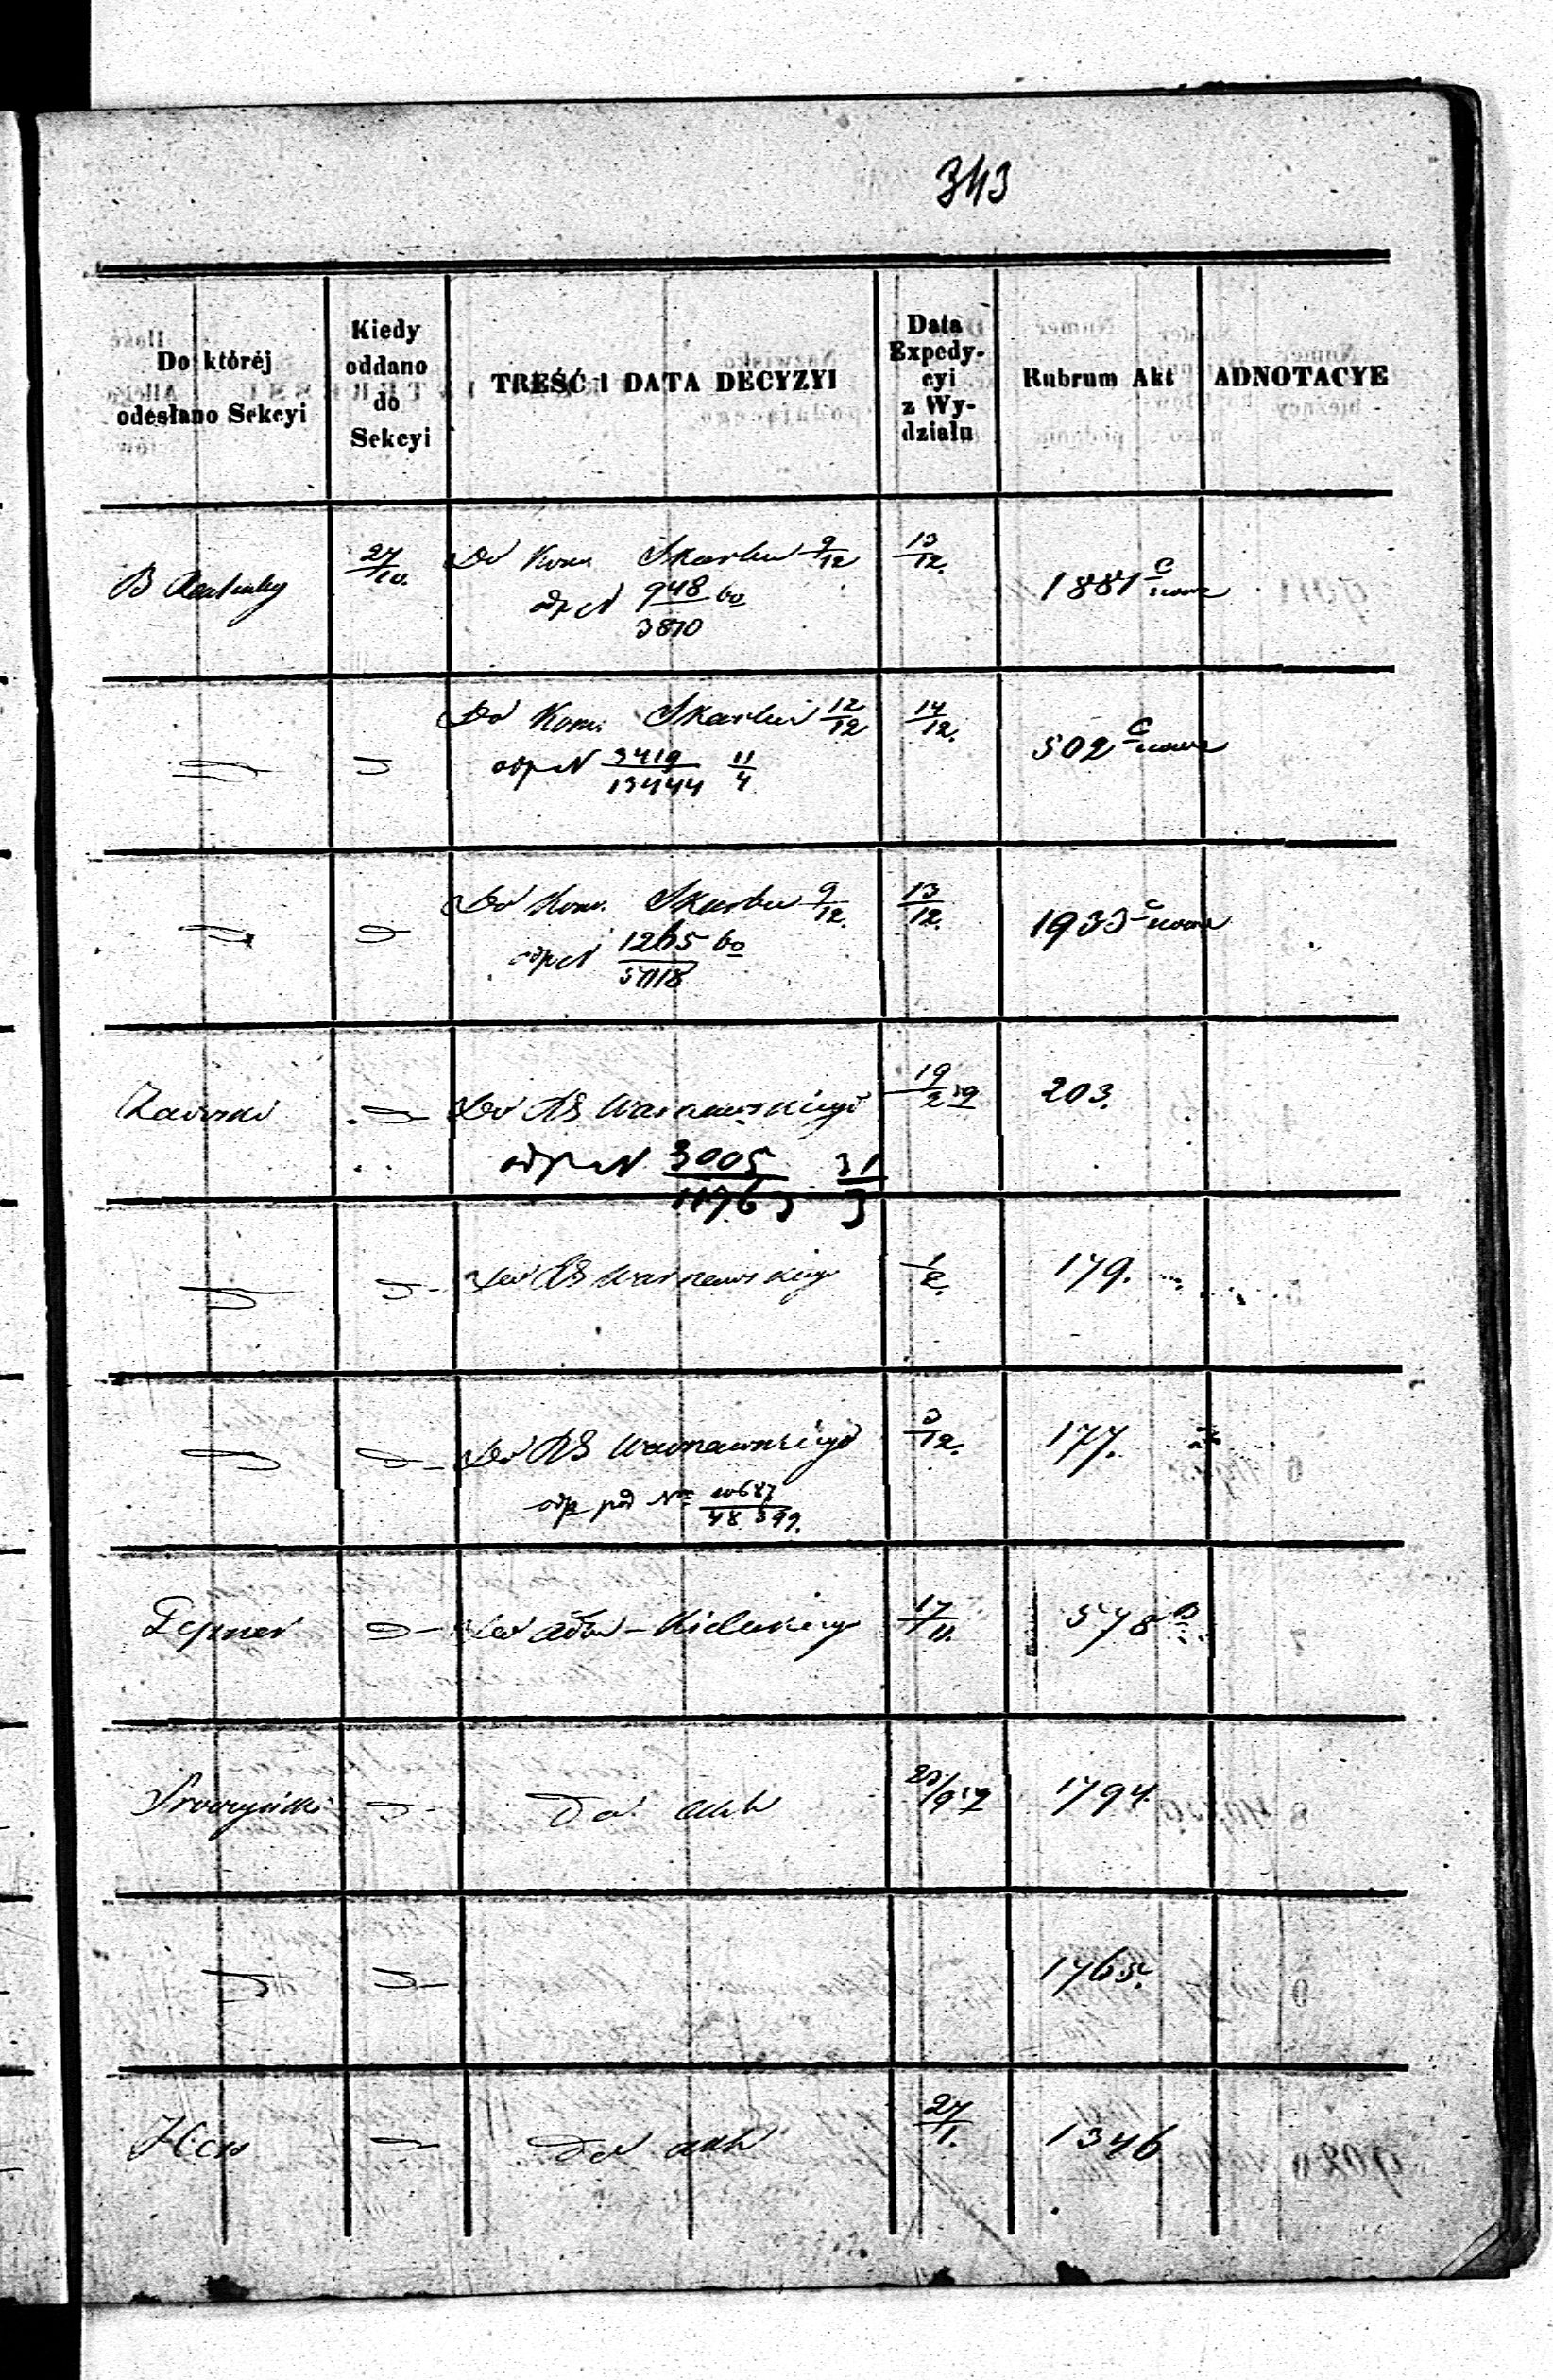 343
Do któréj odesłano Sekcyi
Kiedy oddano do Sekcyi
TREŚĆ I DATA DECYZYI
Data Expedycyi z Wydziału
Rubrum Akt
ADNOTACYE
B 27/10 Do Kom. Skarbu 9/12 13/12 1881 C
odp N 948/3870 bo
Do Kom. Skarbu 12/12 14/12 502 C
odp N 3419/13444 11/4
Do Kom. Skarbu 9/12 13/12 1933 C
odp N 1265 bo
Zaborski Do RG Warszawskiego 19/2 203.
odp N 3005/11763 31/3
Do RG Warszawskiego 1/2 179.
Do RG Warszawskiego 3/12 177.
odp pod Nr 10687/48399.
Do 17/11 578 B
Do akt 1794.
1765.
Hess Do akt 27/1. 1346